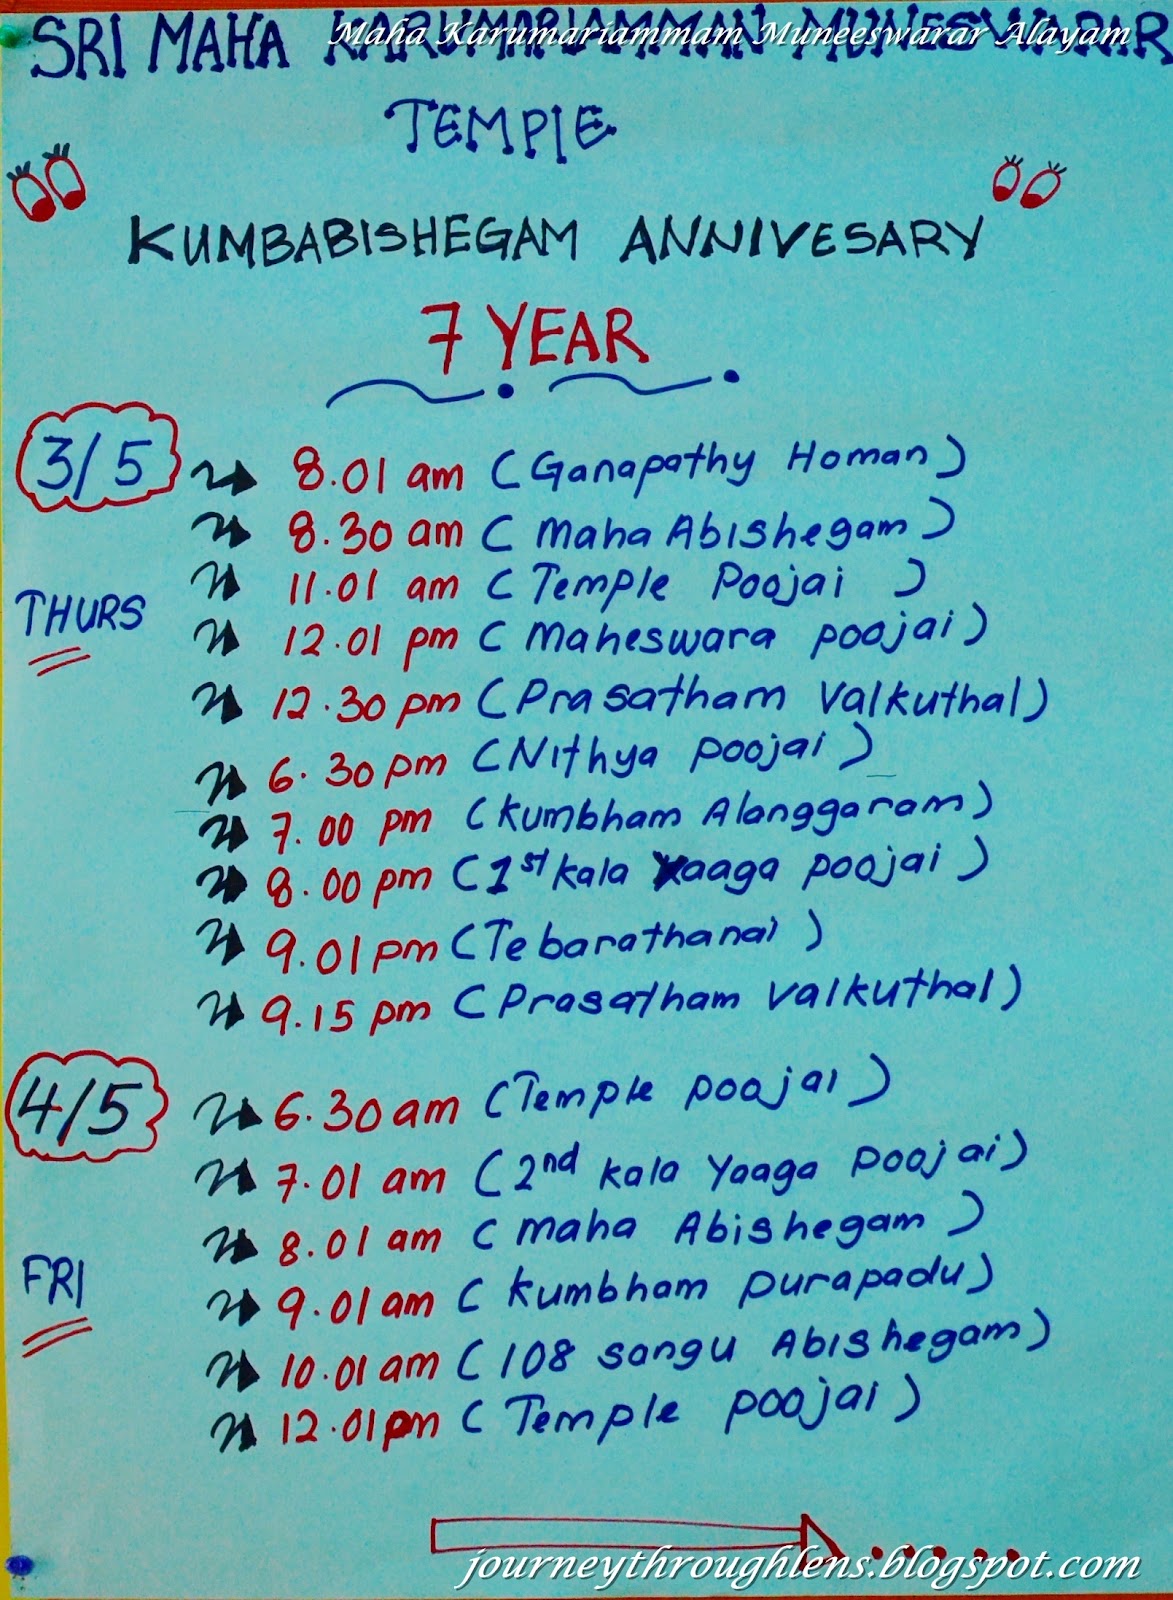 Maha Karumariammam Muneeswarar Alayam
SRI MAHA KARUMARIAMMAN MUNESWARAR
TEMPlE
KUMBABISHEGAM ANNIVESARY
7 YEAR
3/5
THURS
8.01 am (Ganapathy Homan)
8.30 am (Maha Abishegam)
11.01 am (Temple Poojai)
12.01 pm (Maheswara poojai)
12.30 pm (Prasatham Valkuthal)
6.30 pm (Nithya poojai)
7.00 pm (Kumbham Alanggaram)
8.00 pm (1st kala Yaaga poojai)
9.01 pm (Tebarathanai)
9.15 pm (Prasatham Valkuthal)
4/5
FRI
6.30 am (Temple poojai)
7.01 am (2nd kala Yaaga poojai)
8.01 am (Maha Abishegam)
9.01 am (Kumbham purapadu)
10.01 am (108 sangu Abishegam)
12.01 pm (Temple poojai)
journeythroughlens.blogspot.com